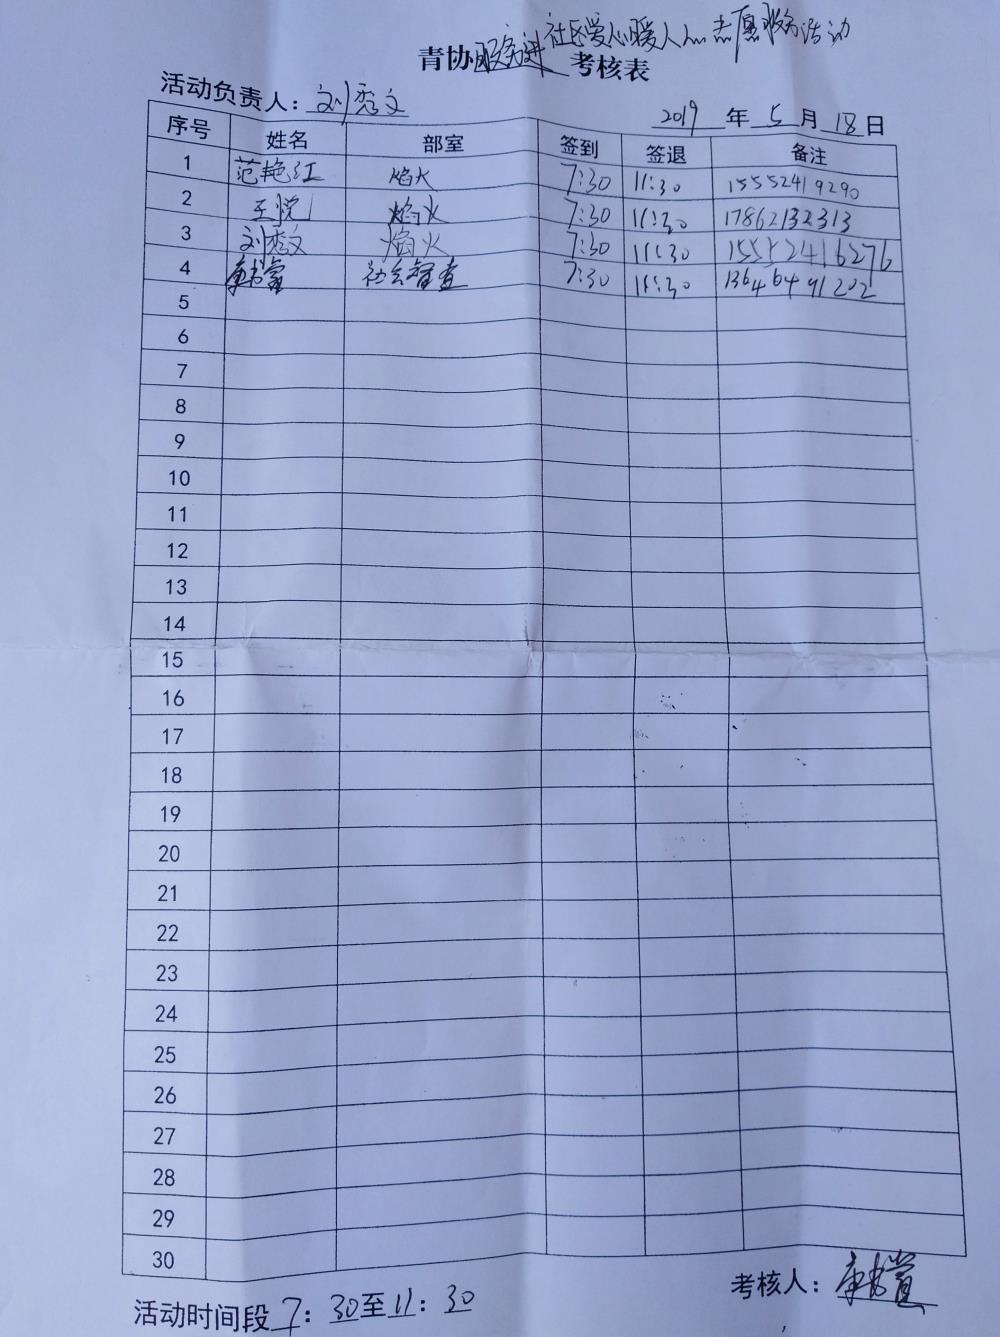 社区爱心暖人心志愿服务活动
青协服务进考核表
活动负责人：刘秀文
2019年5月18日
序号 姓名 部室 签到 签退 备注
1 范艳红 焰火 7:30 11:30 15552419290
2 王悦 焰火 7:30 11:30 17862132313
3 刘秀文 焰火 7:30 11:30 15552416276
4 社会督查 7:30 11:30 13646491202
5
6
7
8
9
10
11
12
13
14
15
16
17
18
19
20
21
22
23
24
25
26
27
28
29
30
考核人：
活动时间段7：30至11：30